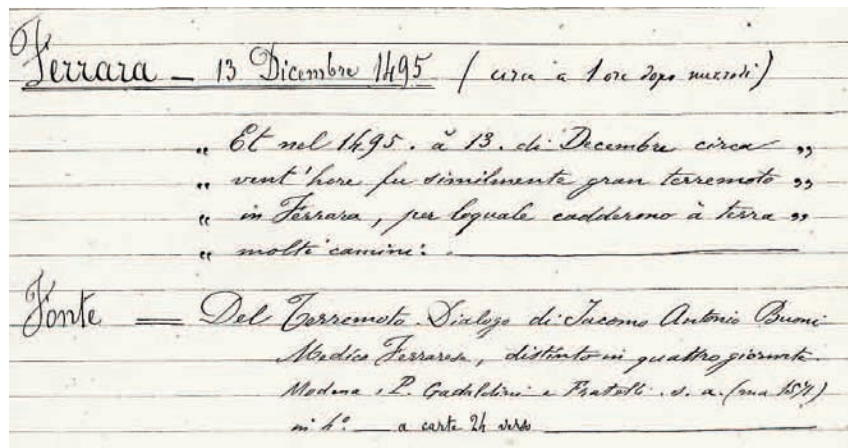 Ferrara - 13 Dicembre 1495 (circa a 1 ore dopo mezzodi)
„ Et nel 1495. à 13. di Decembre circa „
„ vent'hore fu similmente gran terremoto „
„ in Ferrara, per loquale cadderono à terra „
„ molti camini:.
Fonte = Del Terremoto. Dialogo di Jacomo Antonio Buoni
Medico Ferrarese, distinto in quattro giornate.
Modena, P. Gadaldini e Fratelli. s. a. (ma 1571)
in 4° — a carte 24 verso